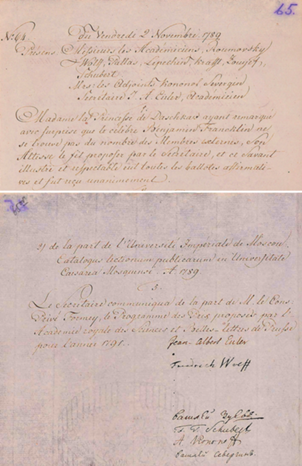 65.
No. 64. Du Vendredi 2 Novembre 1789
Présens Messieurs les Académiciens, Roumovsky
Wolff, Pallas, Lepechin, Krafft, Zouyef,
Schubert
Mrs. les Adjoints Kononof, Severgin
Secrétaire J. A. Euler, Académicien
Madame la Princesse de Daschkaw ayant remarqué
avec surprise que le célèbre Benjamin Francklin ne
se trouve pas du nombre des Membres externes, Son
Altesse le fit proposer par le Secrétaire, et ce savant
illustre et respectable eut toutes les ballotes affirmati-
ves et fut reçu unanimement.
2) de la part de l'Université Impériale de Moscou
Catalogus lectionum publicarum in Universitate
Caesarea Mosquensi. A 1789
§ 3.
Le Secrétaire communiqua de la part de M. le Cons.
Privé Formey, le Programme des Prix proposés par l'
Académie royale des Sciences et Belles lettres de Prusse
pour l'année 1791.
Jean Albert Euler
Friedrich Wolff
F. T. Schubert
A Kononof